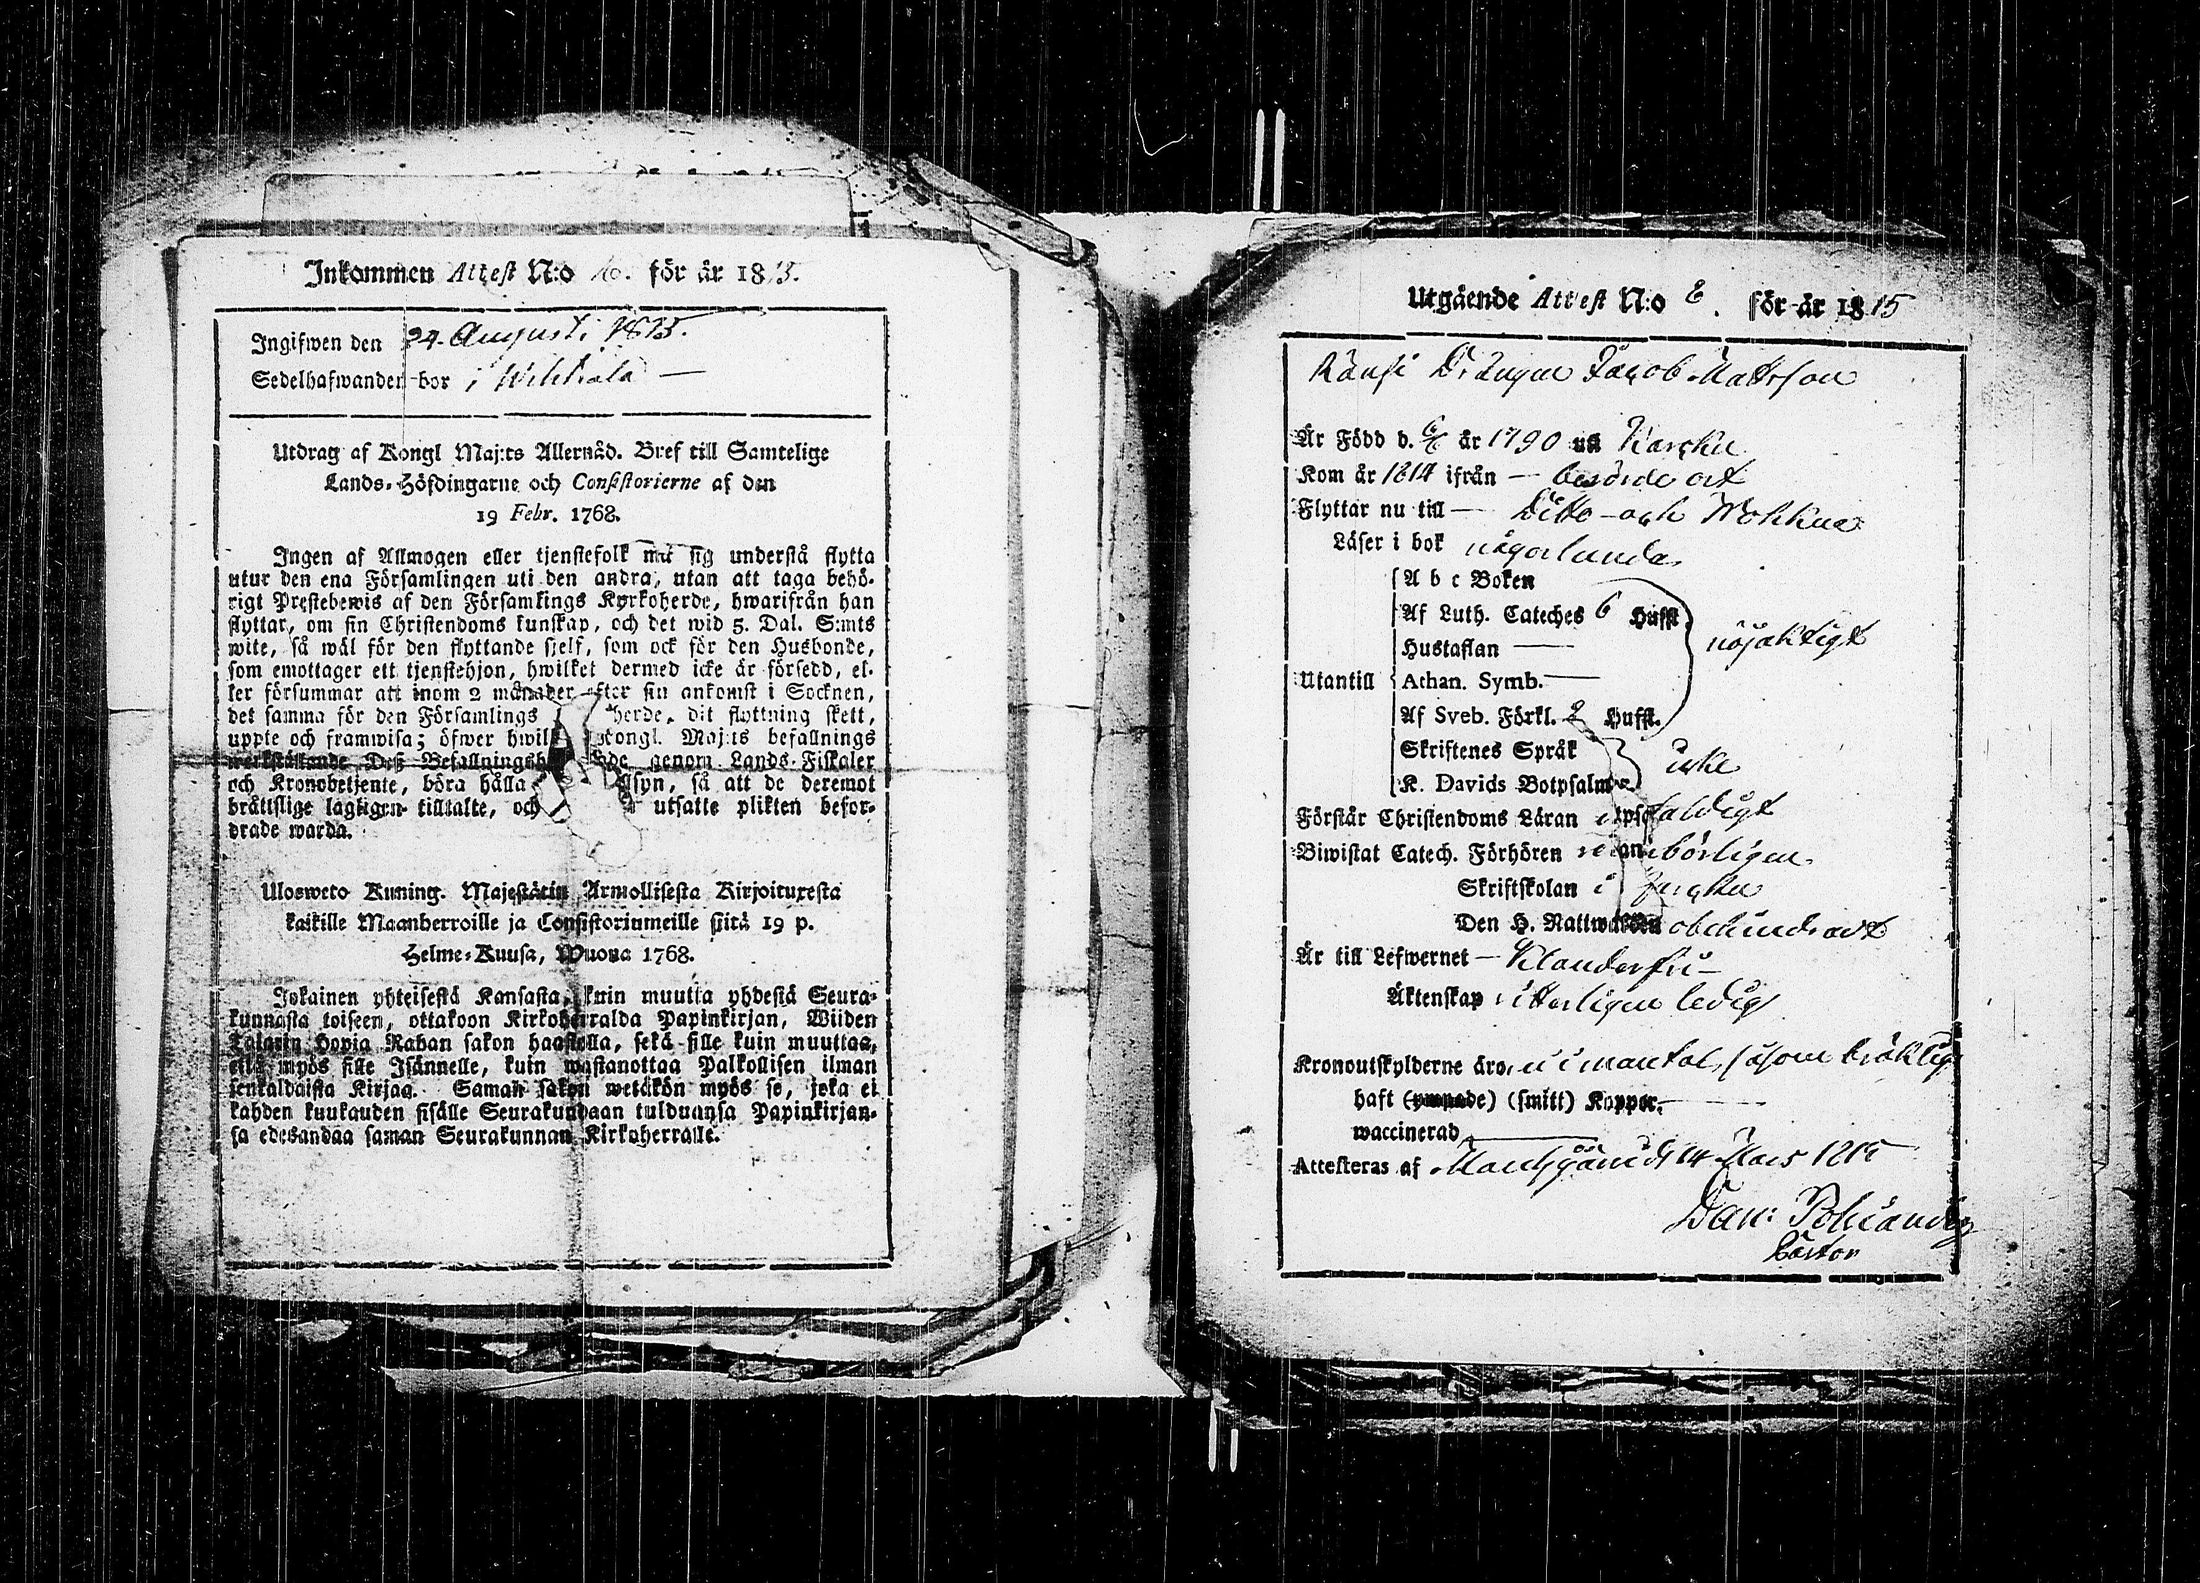 Inkommen Attest N:o för år 18
Ingifwen den 24. Augusti 1815.
Sedelhafwanden bor i
Utdrag af Kongl Maj:ts Allernåd. Bref till Samtelige
Lands-Höfdingarne och Consistorierne af den
19 Febr. 1768.
Ingen af Allmogen eller tjenstefolk må sig understå flytta
utur den ena Församlingen uti den andra, utan att taga behö-
rigt Prestebewis af den Församlings Kyrkoherde, hwarifrån han
flyttar, om sin Christendoms kunskap, och det wid 5. Dal. S:mts
wite, så wäl för den flyttande sjelf, som ock för den Husbonde,
som emottager ett tjenstehjon, hwilket dermed icke är försedd, el-
ler försummar att inom 2 månader efter sin ankomst i Socknen,
det samma för den Församlings herde, dit flyttning skett,
uppte och framwisa; öfwer hwil Kongl. Maj:ts befallnings
werkställande Deß Befallningsh de genom Lands-Fiskaler
och Kronobetjente, böra hålla syn, så att de deremot
bråttslige lagligen tilltalte, och utsatte plikten befor-
drade warda.
Ulosweto Kuning. Majestätin Armollisesta Kirjoituxesta
kaikille Maanherroille ja Consistoriumeille siitä 19 p.
Helme-Kuusa, Wuona 1768.
Jokainen yhteisestä Kansasta, kuin muutta yhdestä Seura-
kunnasta toiseen, ottakoon Kirkoherralda Papinkirjan, Wiiden
Talarin Hopia Rahan sakon haastolla, sekä sille kuin muuttaa,
että myös sille Isännelle, kuin wastanottaa Palkollisen ilman
senkaldaista Kirjaa. Saman sakon wetäkön myös se, joka ei
kahden kuukauden sisälle Seurakundaan tulduansa Papinkirjan-
sa edesandaa saman Seurakunnan Kirkoherralle.
Utgående Attest N:o 8. för år 1815
Drängen Jacob Mattsson
Är Född d. år 1790 uti Karcku
Kom år 1814 ifrån — berörde ort
Flyttar nu till — Ditto och
Läser i bok någorlunda
A b c Boken
Af Luth. Cateches 6 Hufst.
Hustaflan — nöjaktigt
Utantill Athan. Symb. —
Af Sveb. Förkl. 2 Hufst.
Skriftenes Språk
K. Davids Botpsalmer icke
Förstår Christendoms Läran
Biwistat Catech. Förhören
Skriftskolan i
Den H. Nattwarden obehindradt
Är till Lefwernet — Klanderfri —
Äktenskap ledig
Kronoutskylderne äro i mantal, såsom bräklig
haft (ympade) (smitt) Koppor. —
waccinerad —
Attesteras af 14 Mars 1815
Dan: Polviander
Pastor